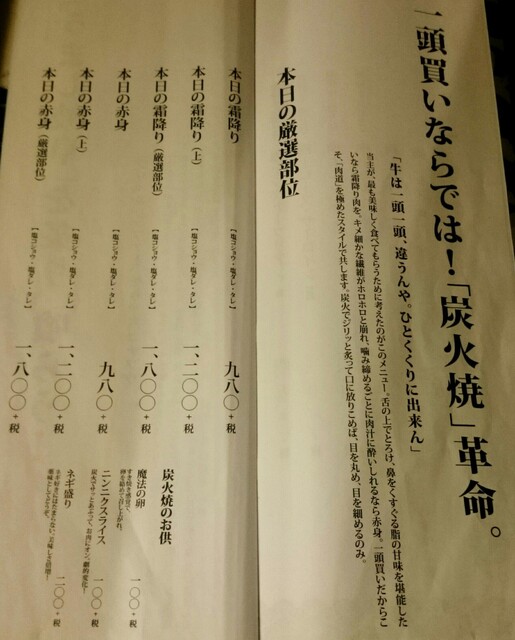 一頭買いならでは!「炭火焼」革命。
「牛は一頭一頭、違うんや。ひとくくりに出来ん」
当主が、最も美味しく食べてもらうために考えたのがこのメニュー。舌の上でとろけ、鼻をくすぐる脂の甘味を堪能した
いなら霜降り肉を。キメ細かな繊維がホロホロと崩れ、噛み締めるごとに肉汁に酔いしれるなら赤身。一頭買いだからこ
そ、「肉道」を極めたスタイルで共します。炭火でジリッと炙って口に放りこめば、目を丸め、目を細めるのみ。
本日の厳選部位
本日の霜降り 【塩コショウ・塩ダレ・タレ】 九八〇+税
本日の霜降り(上) 【塩コショウ・塩ダレ・タレ】 一、二〇〇+税
本日の霜降り(厳選部位) 【塩コショウ・塩ダレ・タレ】 一、八〇〇+税
本日の赤身 【塩コショウ・塩ダレ・タレ】 九八〇+税
本日の赤身(上) 【塩コショウ・塩ダレ・タレ】 一、二〇〇+税
本日の赤身(厳選部位) 【塩コショウ・塩ダレ・タレ】 一、八〇〇+税
炭火焼のお供
魔法の卵
すき焼き感覚で、
卵を絡めて召し上がれ。 一〇〇+税
ニンニクスライス
炭火でサッとあぶって、お肉にオン。劇的変化! 一〇〇+税
ネギ盛り
ネギ好きにはたまらない、美味しさ倍増!
薬味としてどうぞ。 二〇〇+税